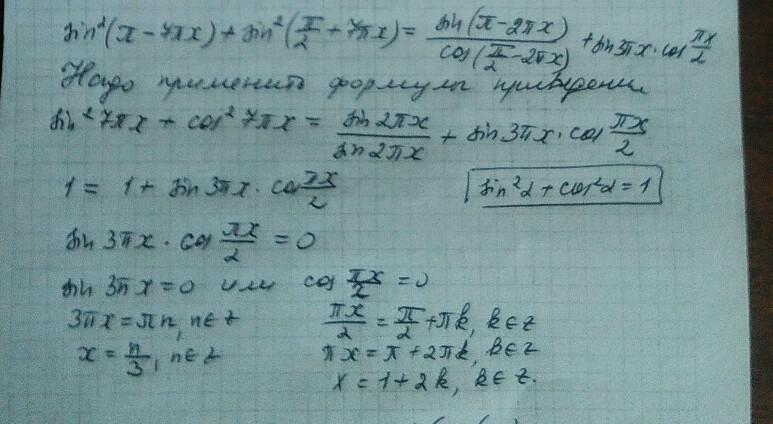 sin²(π-7πx)+sin²(π/2+7πx)= sin(π-2πx)/cos(π/2-2πx) +sin3πx·cos πx/2
Надо применить формулы приведени
sin²7πx + cos²7πx = sin2πx/sin2πx + sin3πx·cos πx/2
1 = 1+ sin3πx·cos πx/2   sin²α+cos²α=1
sin3πx·cos πx/2 =0
sin3πx=0 или cos πx/2 =0
3πx=πn, n∈z   πx/2 = π/2 +πk, k∈z
x= n/3, n∈z   πx=π+2πk, k∈z
x=1+2k, k∈z.